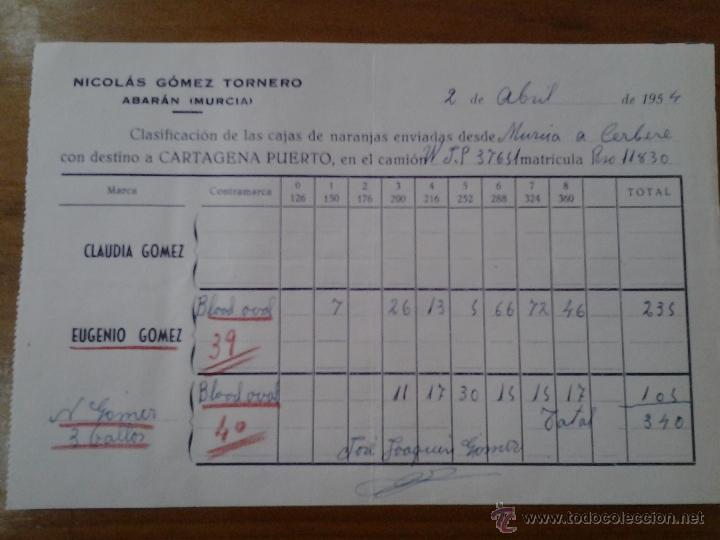 NICOLÁS GÓMEZ TORNERO
ABARÁN (MURCIA)
2 de Abril de 1954
Clasificación de las cajas de naranjas enviadas desde Murcia a Cerbere
con destino a CARTAGENA PUERTO, en el camión W J.P 37651 matrícula 11830
Marca Contramarca 0 1 2 3 4 5 6 7 8 TOTAL
126 150 176 200 216 252 288 324 360
CLAUDIA GOMEZ
Blood oval 7 26 13 5 66 72 46 235
EUGENIO GOMEZ 39
Blood oval 11 17 30 15 15 17 105
N Gómez 40 Total 340
3 Gallos
José Joaquín Gómez
© www.todocoleccion.net